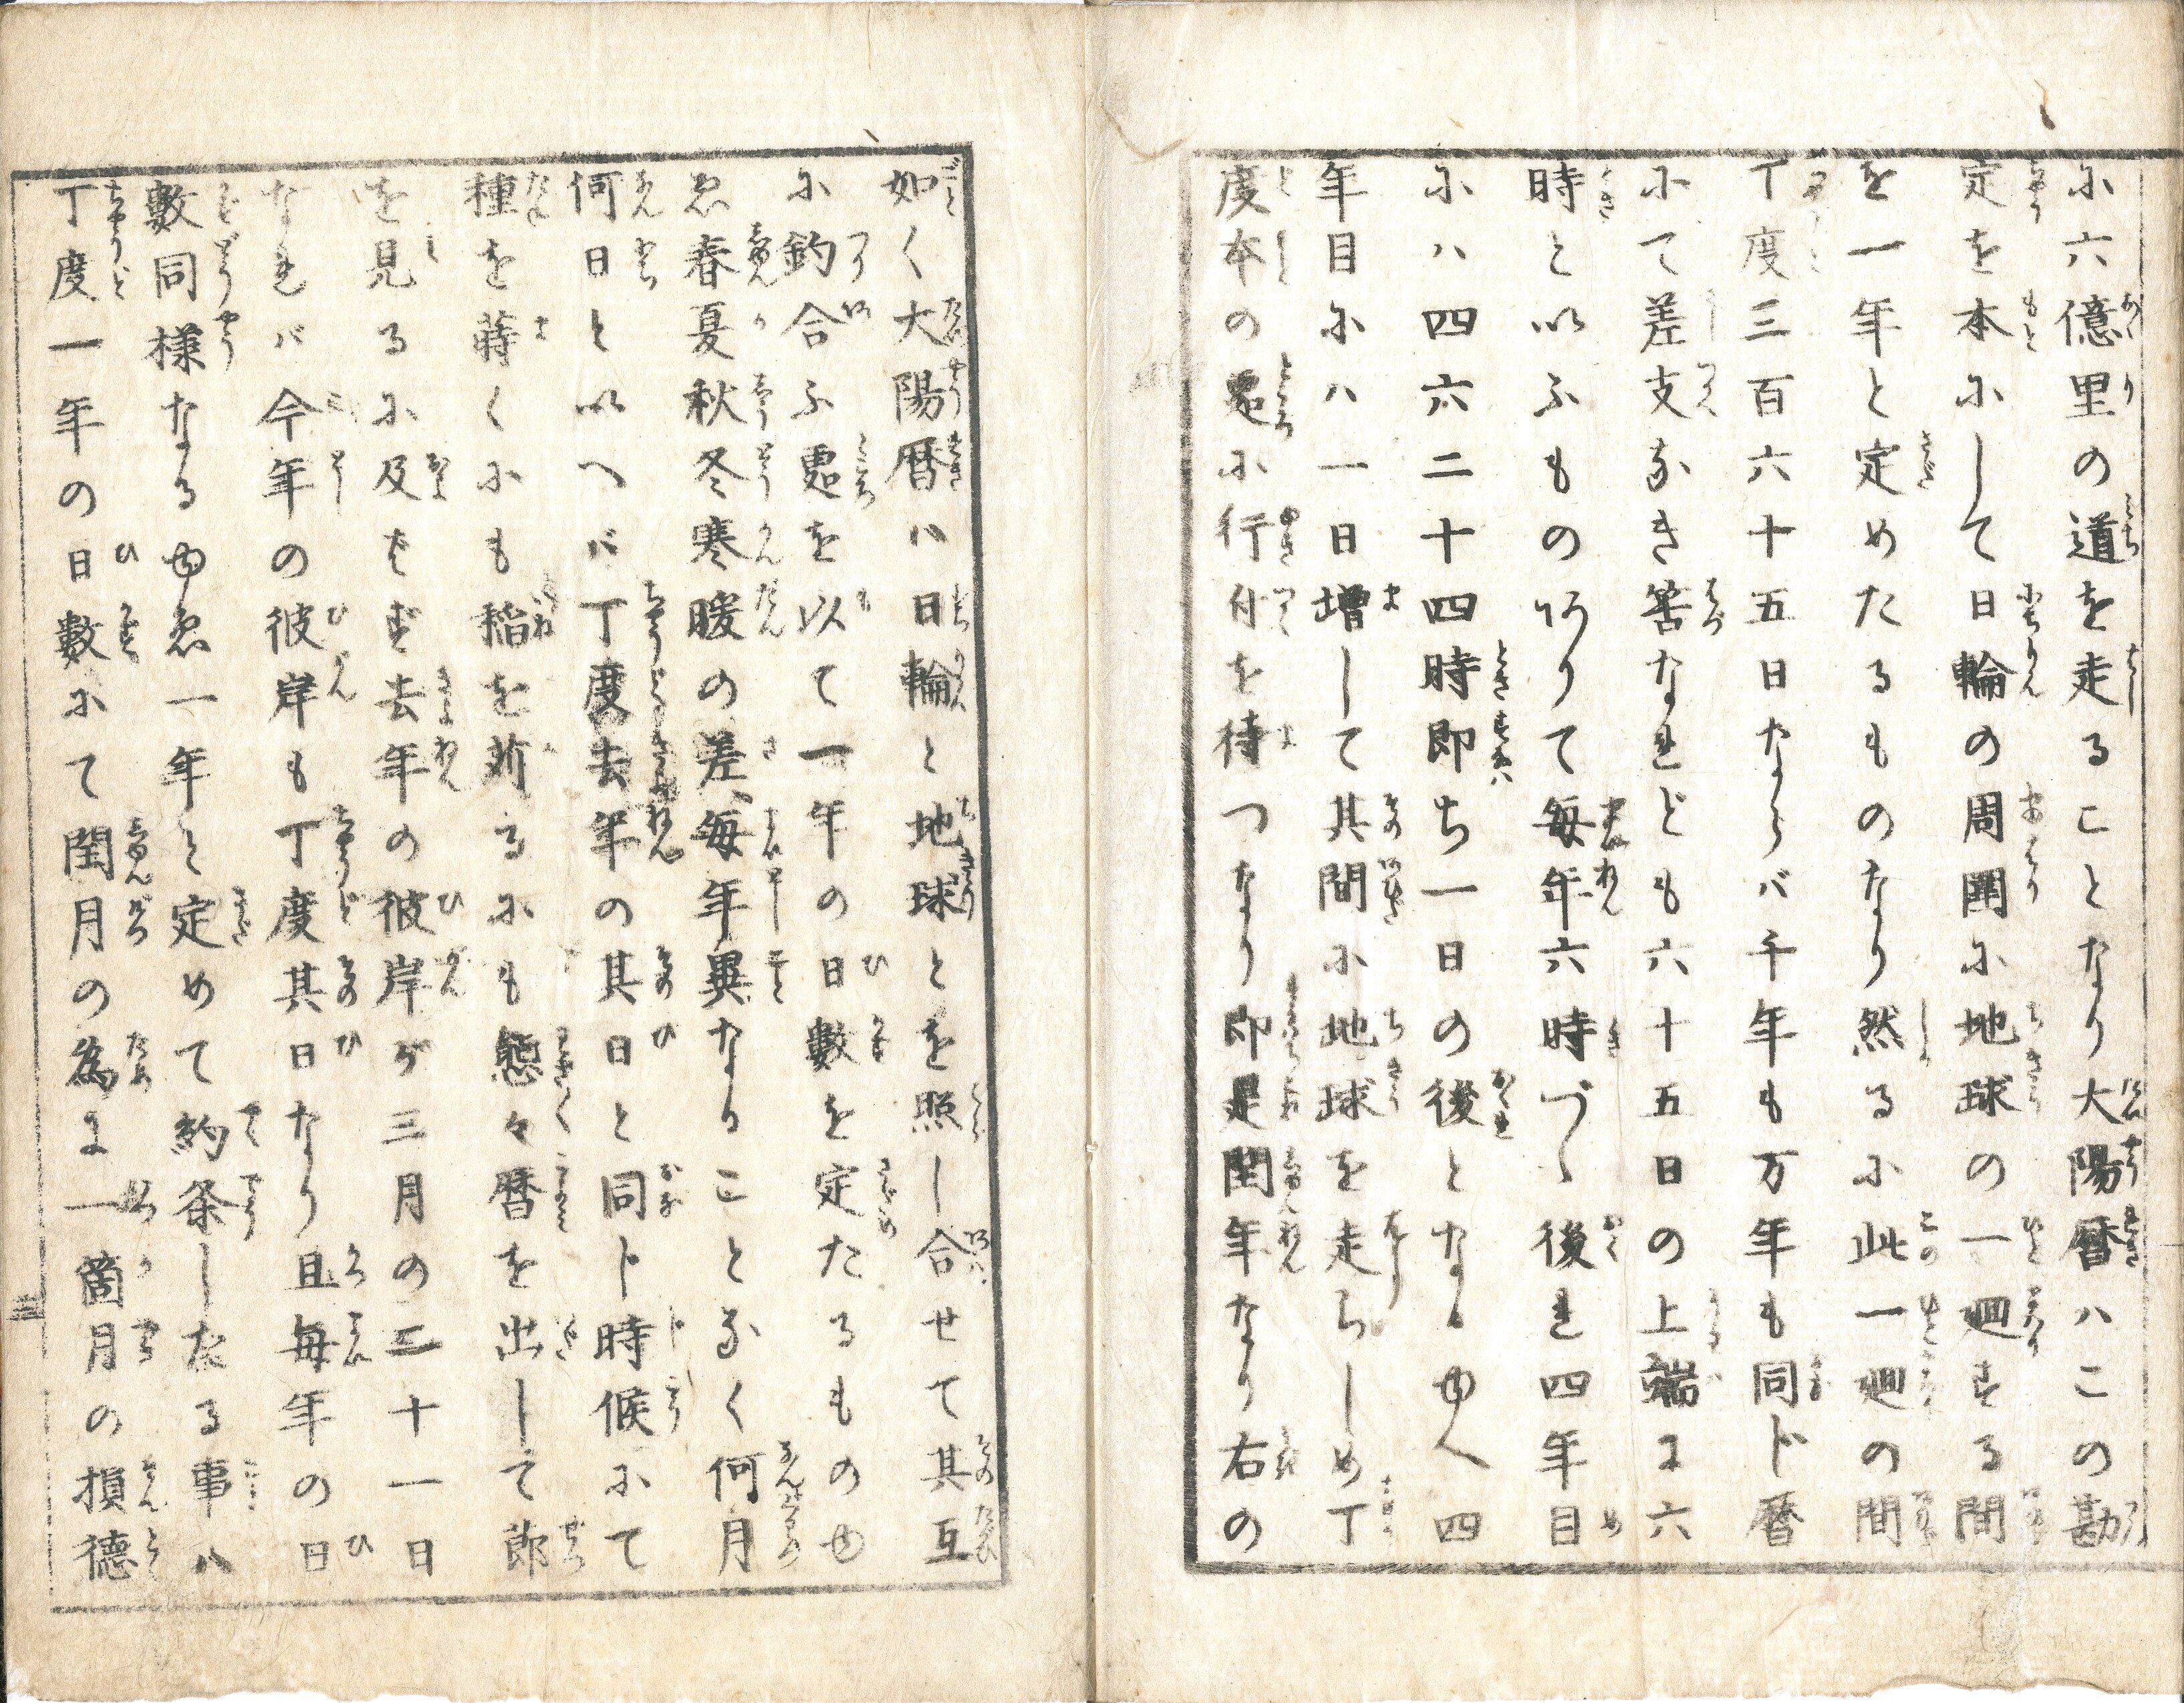 に六億里の道を走ることなり大陽暦ハこの勘
定を本にして日輪の周囲に地球の一廻する間
を一年と定めたるものなり然るに此一廻の間
丁度三百六十五日ならバ千年も万年も同ト暦
にて差支なき筈なれども六十五日の上端に六
時と以ふもの有りて毎年六時づゝ後れ四年目
にハ四六二十四時即ち一日の後となるゆへ四
年目にハ一日増して其間に地球を走らしめ丁
度本の処に行付を待つなり即是閏年なり右の
如く大陽暦ハ日輪と地球とを照し合せて其互
に釣合ふ処を以て一年の日數を定たるものゆ
ゑ春夏秋冬寒暖の差毎年異なることなく何月
何日と以へバ丁度去年の其日と同ト時候にて
種を蒔くにも稲を苅るにも態々暦を出して節
を見るに及をず去年の彼岸が三月の二十一日
なれバ今年の彼岸も丁度其日なり且毎年の日
數同様なるゆゑ一年と定めて約条したる事ハ
丁度一年の日數にて閏月の為に一箇月の損徳
三